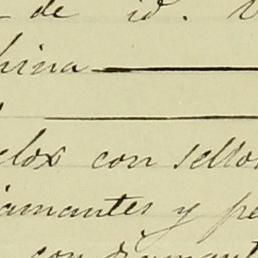 de id.
china
relox con sellos
diamantes y pe
con diamant